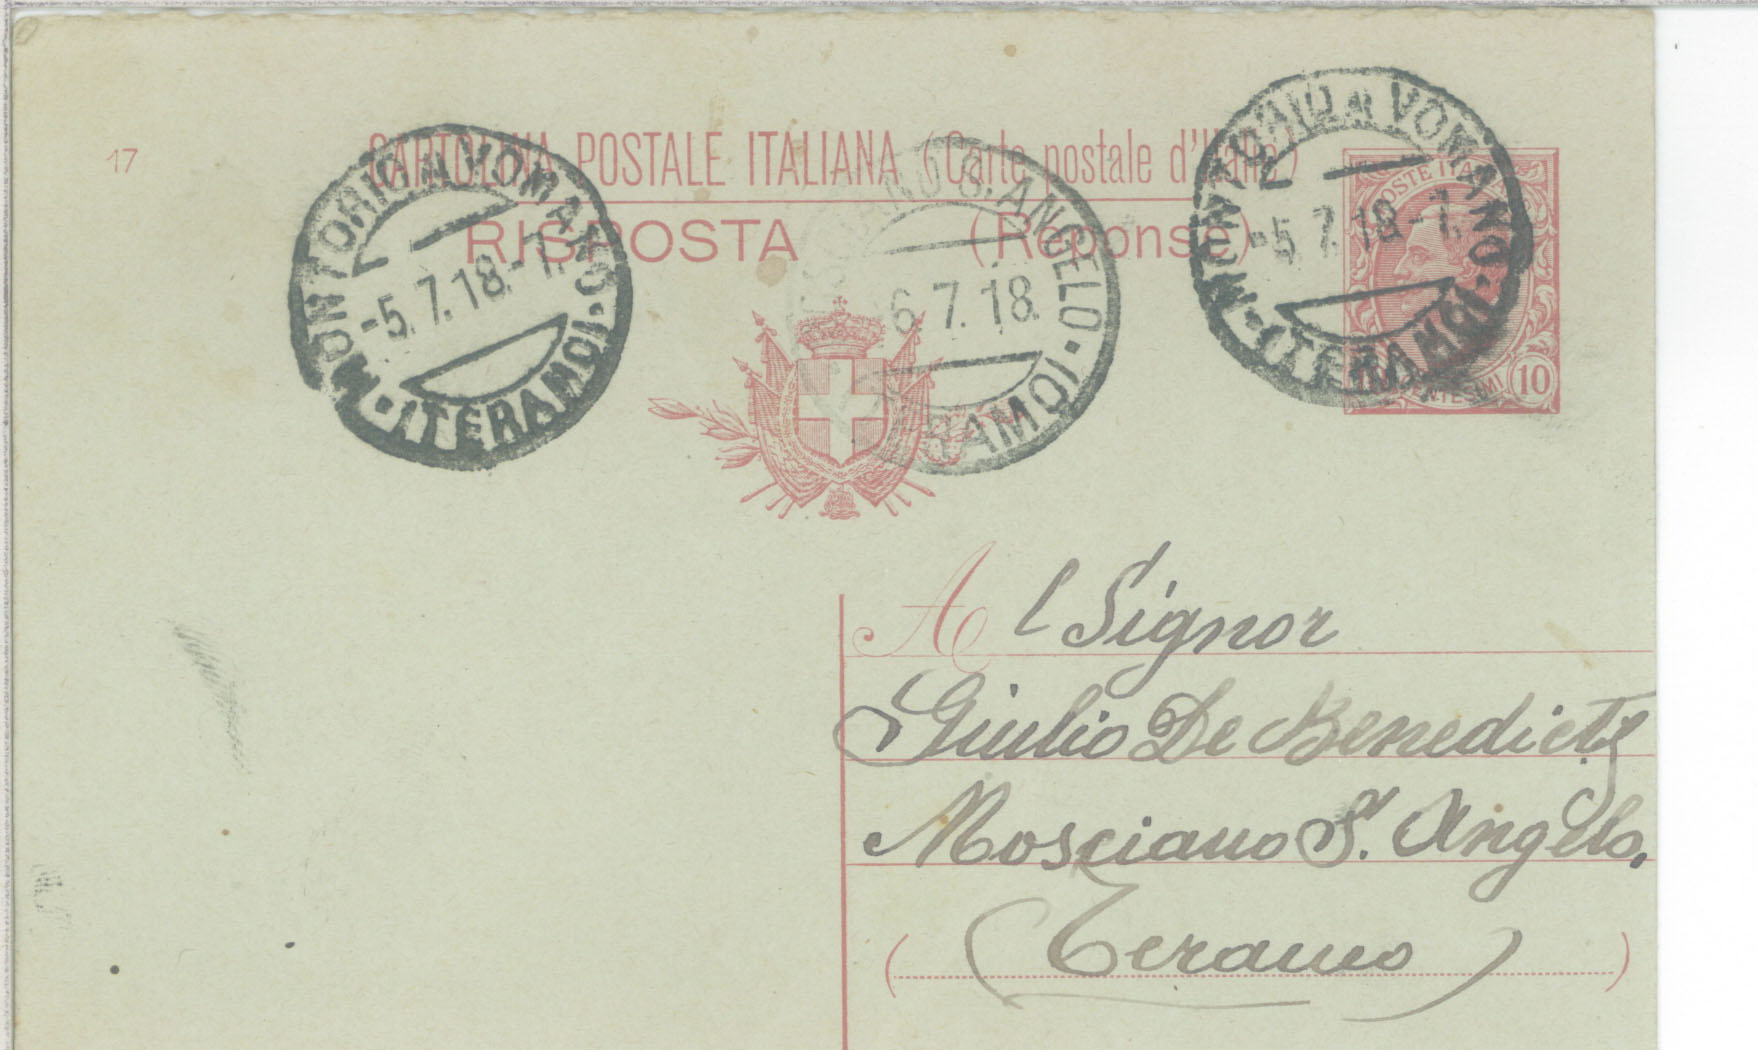 17
CARTOLINA POSTALE ITALIANA (Carte postale d'Italie)
RISPOSTA (Réponse)
MONTORIO AL VOMANO · (TERAMO) ·
-5.7.18.-7.
S. ANGELO · (TERAMO)
6.7.18.
MONTORIO AL VOMANO · (TERAMO) ·
-5.7.18.-7.
POSTE ITALIANE
CENTESIMI 10
Al Signor
Giulio De Benedictis
Mosciano S. Angelo,
(Teramo)